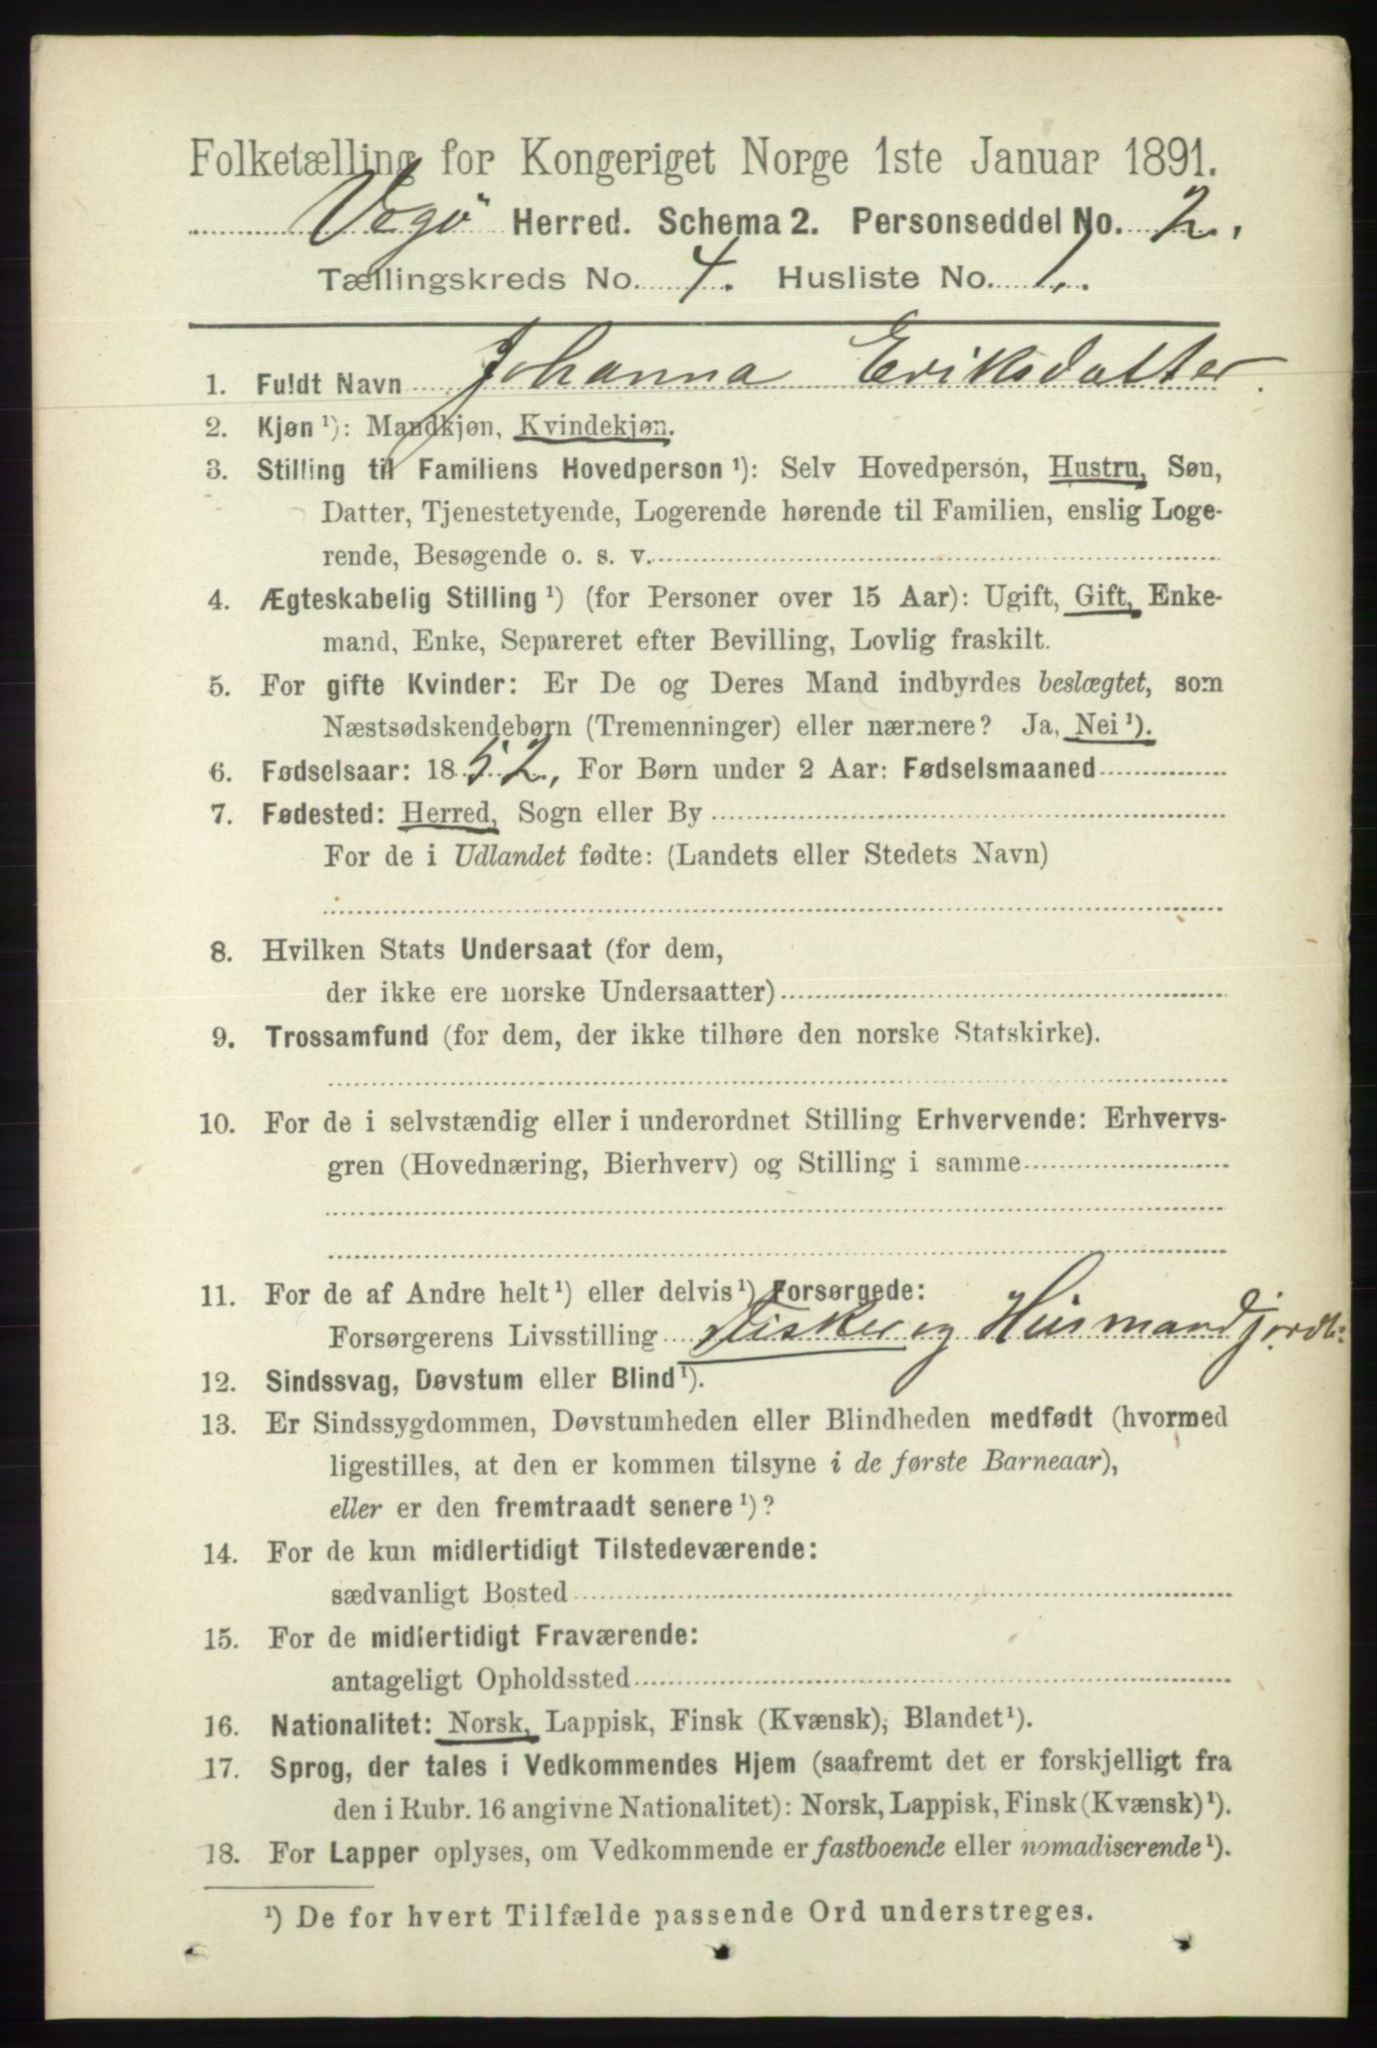 Folketælling for Kongeriget Norge 1ste Januar 1891.
Vegø Herred. Schema 2. Personseddel No. 2.
Tællingskreds No. 4. Husliste No. 1.
1. Fuldt Navn Johanna Eriksdatter.
2. Kjøn ¹): Mandkjøn, Kvindekjøn.
3. Stilling til Familiens Hovedperson ¹): Selv Hovedperson, Hustru, Søn,
Datter, Tjenestetyende, Logerende hørende til Familien, enslig Loge-
rende, Besøgende o. s. v.
4. Ægteskabelig Stilling ¹) (for Personer over 15 Aar): Ugift, Gift, Enke-
mand, Enke, Separeret efter Bevilling, Lovlig fraskilt.
5. For gifte Kvinder: Er De og Deres Mand indbyrdes beslægtet, som
Næstsødskendebørn (Tremenninger) eller nærmere? Ja, Nei ¹).
6. Fødselsaar: 1852, For Børn under 2 Aar: Fødselsmaaned
7. Fødested: Herred, Sogn eller By
For de i Udlandet fødte: (Landets eller Stedets Navn)
8. Hvilken Stats Undersaat (for dem,
der ikke ere norske Undersaatter)
9. Trossamfund (for dem, der ikke tilhøre den norske Statskirke).
10. For de i selvstændig eller i underordnet Stilling Erhvervende: Erhvervs-
gren (Hovednæring, Bierhverv) og Stilling i samme
11. For de af Andre helt ¹) eller delvis ¹) Forsørgede:
Forsørgerens Livsstilling Fisker og Husmand jord:
12. Sindssvag, Døvstum eller Blind ¹).
13. Er Sindssygdommen, Døvstumheden eller Blindheden medfødt (hvormed
ligestilles, at den er kommen tilsyne i de første Barneaar),
eller er den fremtraadt senere ¹)?
14. For de kun midlertidigt Tilstedeværende:
sædvanligt Bosted
15. For de midlertidigt Fraværende:
antageligt Opholdssted
16. Nationalitet: Norsk, Lappisk, Finsk (Kvænsk), Blandet ¹).
17. Sprog, der tales i Vedkommendes Hjem (saafremt det er forskjelligt fra
den i Rubr. 16 angivne Nationalitet): Norsk, Lappisk, Finsk (Kvænsk) ¹).
18. For Lapper oplyses, om Vedkommende er fastboende eller nomadiserende ¹).
¹) De for hvert Tilfælde passende Ord understreges.